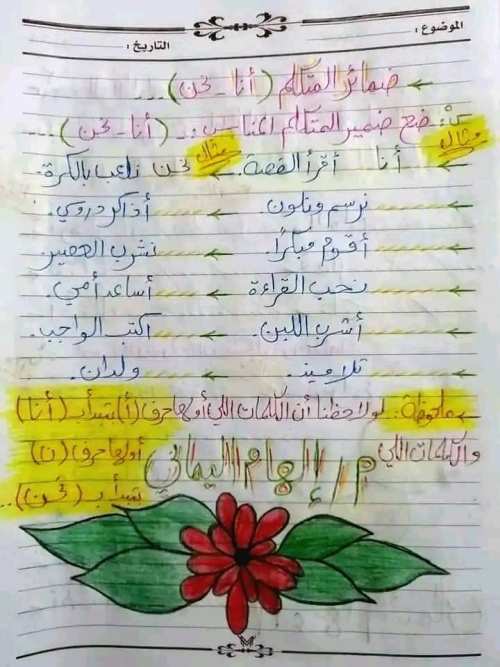 الموضوع :
التاريخ :
ضمائر المتكلم (أنا - نحن)...
س١: ضع ضمير المتكلم المناسب.. (أنا - نحن)...
مثال
أنا أقرأ القصة.
مثال
نحن نلعب بالكرة.
...... نرسم ونلون.
...... أذاكر دروسي.
...... أقوم مبكرًا.
...... نشرب العصير.
...... نحب القراءة
...... أساعد أمي.
...... أشرب اللبن.
...... أكتب الواجب.
...... تلاميذ.
...... ولدان.
ملحوظة: لو لاحظنا أن الكلمات اللي أولها حرف (أ) بتبدأ ب (أنا)
والكلمات اللي أولها حرف (ن)
بتبدأ ب (نحن)...
م / إلهام اليماني